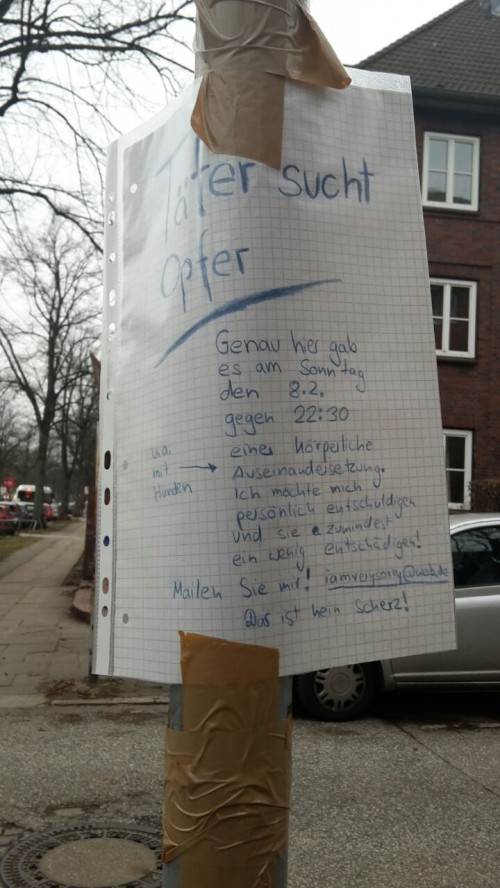 Täter sucht
Opfer
Genau hier gab
es am Sonntag
den 8.2.
gegen 22:30
eine körperliche
Auseinandersetzung.
u.a.
mit →
Hunden
Ich möchte mich
persönlich entschuldigen
und sie zumindest
ein wenig entschädigen!
Mailen Sie mir! iamverysorry@web.de
Das ist kein scherz!